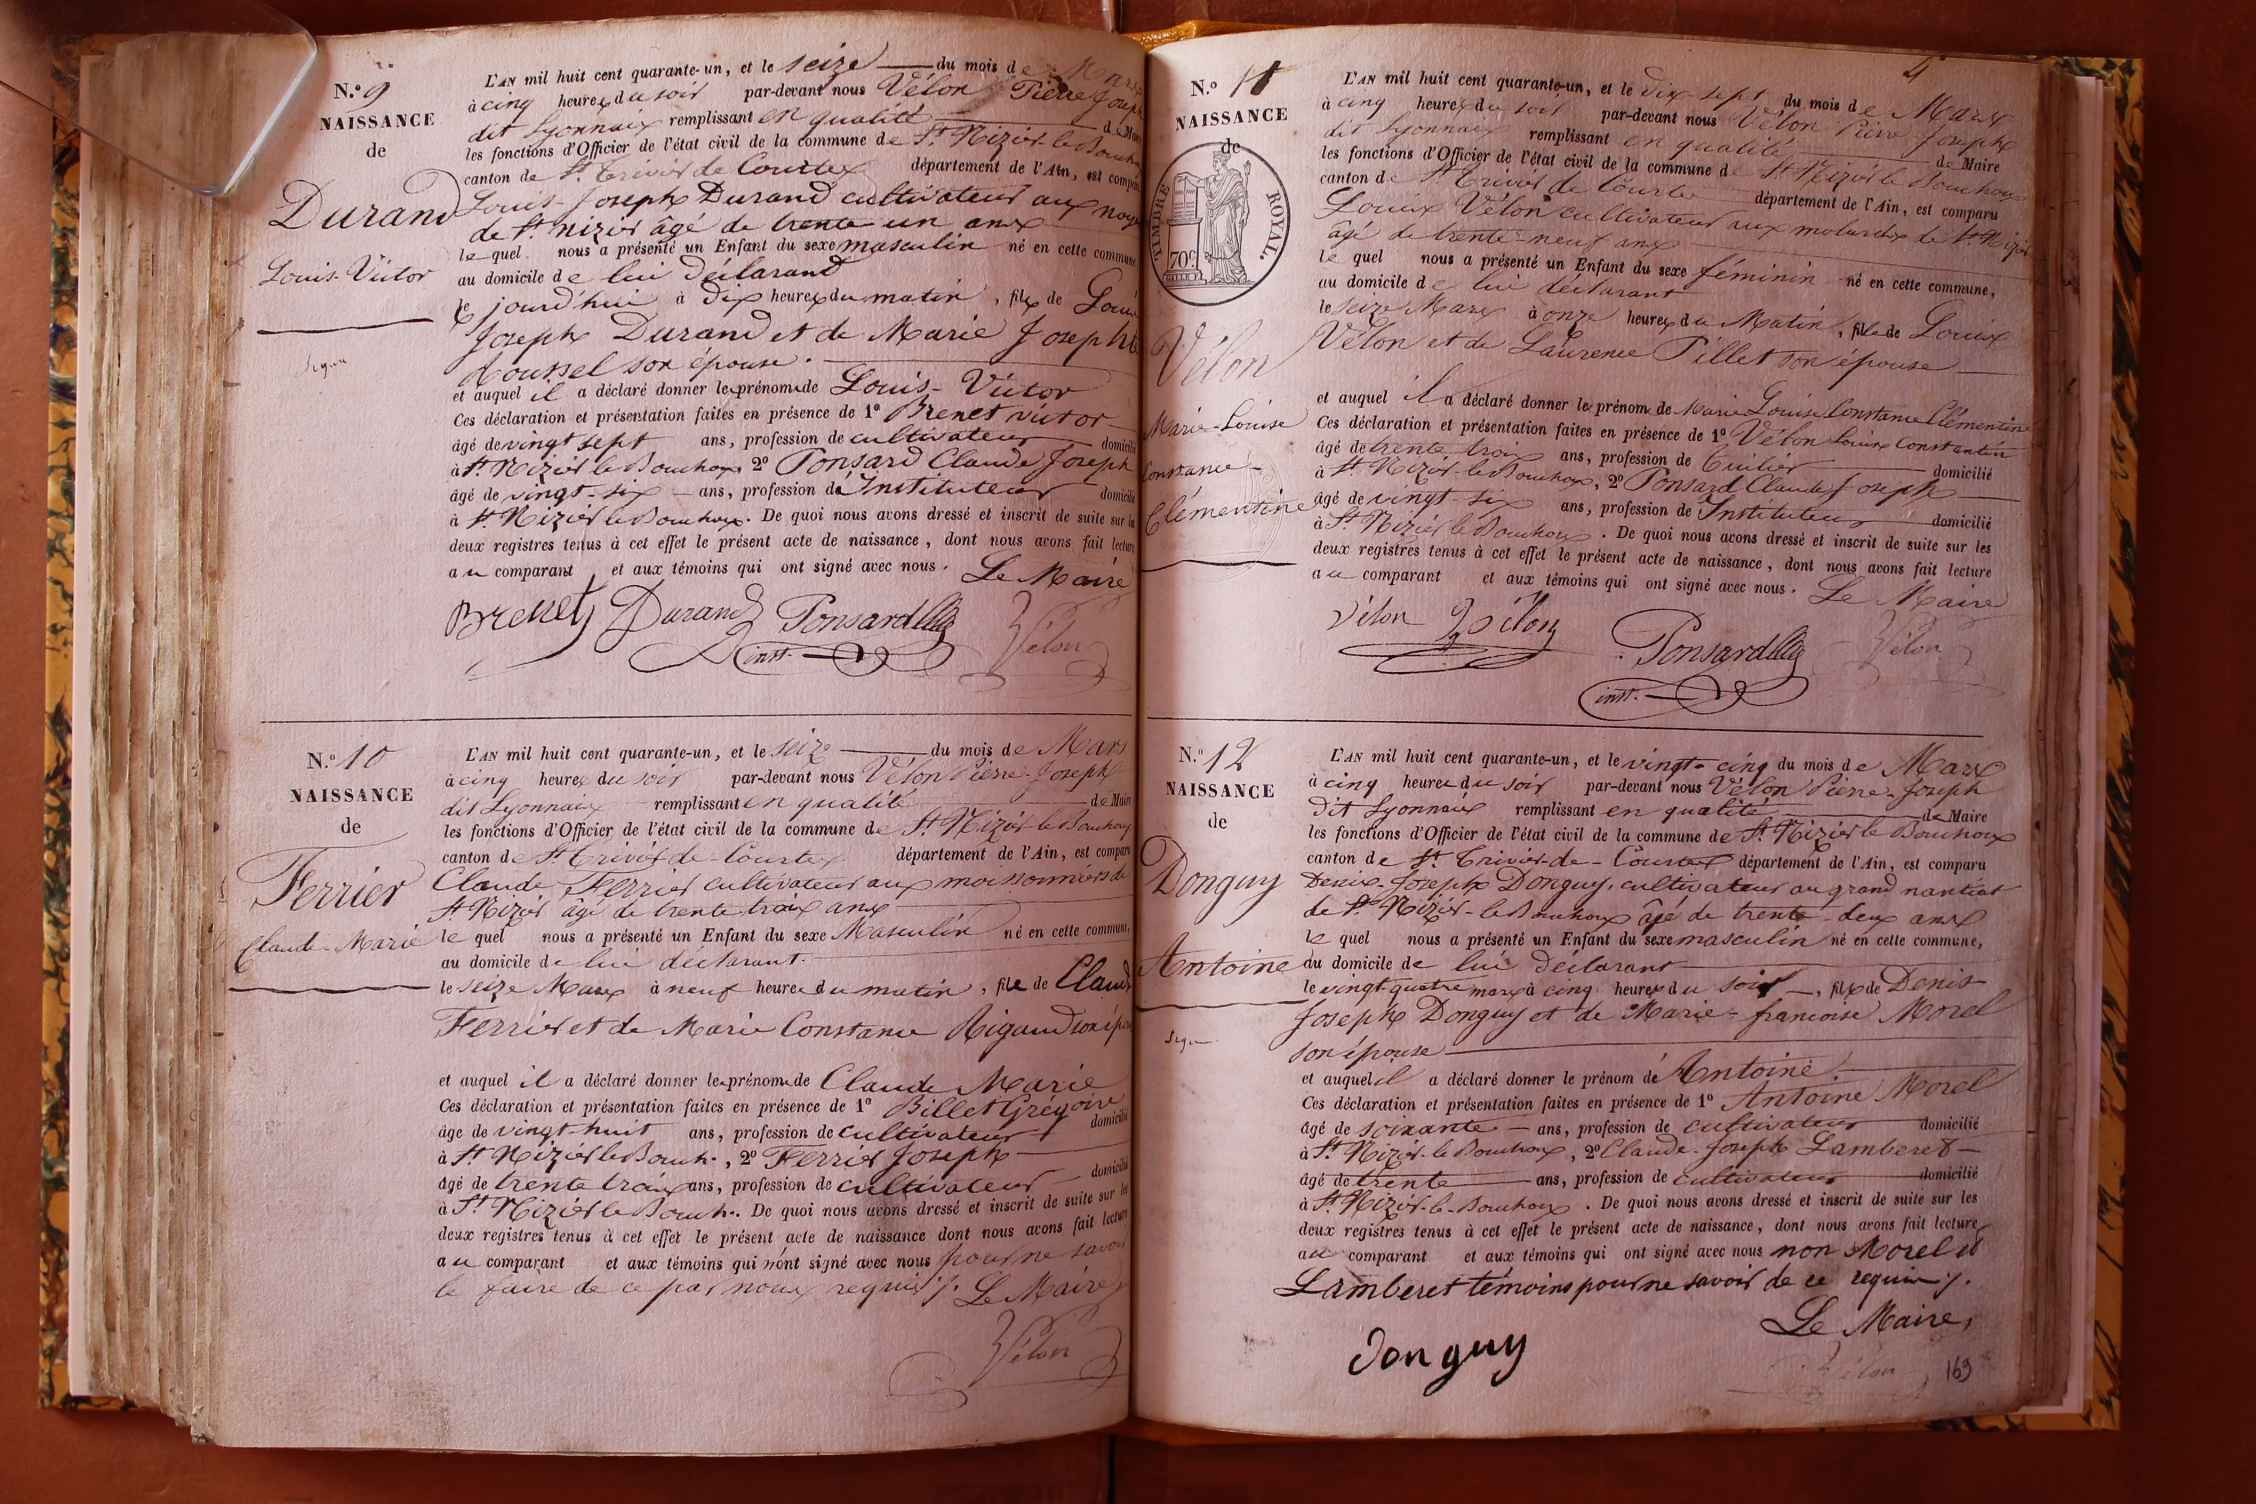 N.º 9
NAISSANCE
de
Durand
Louis-Victor
L'AN mil huit cent quarante-un, et le seize du mois de Mars
à cinq heures du soir par-devant nous Vélon Pierre Joseph
dit Lyonnais remplissant en qualité de Maire
les fonctions d'Officier de l'état civil de la commune de St. Nizier le Bouchoux
canton de St. Trivier de Courtes département de l'Ain, est comparu
Louis-Joseph Durand cultivateur aux noyer
de St. nizier âgé de trente un ans
le quel nous a présenté un Enfant du sexe masculin né en cette commune
au domicile de lui déclarand
le jourd'hui à dix heures du matin, fils de Louis
Joseph Durand et de Marie Josephte
Roussel son épouse.
et auquel il a déclaré donner les prénoms de Louis-Victor
Ces déclaration et présentation faites en présence de 1º Brenet victor
âgé de vingt sept ans, profession de cultivateur domicilié
à St. Nizier le Bouchoux, 2º Ponsard Claude Joseph
âgé de vingt-six ans, profession de Instituteur domicilié
à St. Nizier le Bouchoux. De quoi nous avons dressé et inscrit de suite sur les
deux registres tenus à cet effet le présent acte de naissance, dont nous avons fait lecture
au comparant et aux témoins qui ont signé avec nous. Le Maire
Brenet Durand Ponsard
inst. Vélon
N.º 10
NAISSANCE
de
Ferrier
Claude-Marie
L'AN mil huit cent quarante-un, et le seize du mois de Mars
à cinq heures du soir par-devant nous Vélon Pierre-Joseph
dit Lyonnais remplissant en qualité de Maire
les fonctions d'Officier de l'état civil de la commune de St. Nizier le Bouchoux
canton de St. Trivier de Courtes département de l'Ain, est comparu
Claude Ferrier cultivateur aux moissonniers de
St. Nizier âgé de trente trois ans
le quel nous a présenté un Enfant du sexe Masculin né en cette commune,
au domicile de lui déclarant.
le seize Mars à neuf heures du matin, fils de Claude
Ferrier et de Marie Constance Rigaud son épse
et auquel il a déclaré donner les prénoms de Claude Marie
Ces déclaration et présentation faites en présence de 1º Billet Grégoire
âgé de vingt-huit ans, profession de cultivateur domicilié
à St. Nizier le Bouch., 2º Ferrier Joseph
âgé de trente trois ans, profession de cultivateur domicilié
à St. Nizier le Bouch. De quoi nous avons dressé et inscrit de suite sur les
deux registres tenus à cet effet le présent acte de naissance dont nous avons fait lecture
au comparant et aux témoins qui n'ont signé avec nous pour ne savoir
le faire de ce par nous requis /. Le Maire
Vélon
4
N.º 11
NAISSANCE
de
TIMBRE ROYAL.
70 C.
Vélon
Marie-Louise
Constance-
Clémentine
L'AN mil huit cent quarante-un, et le dix-sept du mois de Mars
à cinq heures du soir par-devant nous Vélon Pierre Joseph
dit Lyonnais remplissant en qualité de Maire
les fonctions d'Officier de l'état civil de la commune de St. Nizier le Bouchoux
canton de St. Trivier de Courtes département de l'Ain, est comparu
Louis Vélon cultivateur aux molardes de St. Nizier
âgé de trente-neuf ans
le quel nous a présenté un Enfant du sexe féminin né en cette commune,
au domicile de lui déclarant
le seize Mars à onze heures du Matin, fille de Louis
Vélon et de Laurence Pillet son épouse
et auquel il a déclaré donner le prénom de Marie Louise Constance Clémentine
Ces déclaration et présentation faites en présence de 1º Vélon Louis Constantin
âgé de trente trois ans, profession de Tuilier domicilié
à St. Nizier-le Bouchoux, 2º Ponsard Claude Joseph
âgé de vingt-six ans, profession de Instituteur domicilié
à St. Nizier le Bouchoux. De quoi nous avons dressé et inscrit de suite sur les
deux registres tenus à cet effet le présent acte de naissance, dont nous avons fait lecture
au comparant et aux témoins qui ont signé avec nous. Le Maire
Vélon Vélon Ponsard Vélon
inst.
N.º 12
NAISSANCE
de
Donguy
Antoine
L'AN mil huit cent quarante-un, et le vingt-cinq du mois de Mars
à cinq heures du soir par-devant nous Vélon Pierre-Joseph
Dit Lyonnais remplissant en qualité de Maire
les fonctions d'Officier de l'état civil de la commune de St. Nizier le Bouchoux
canton de St. Trivier-de-Courtes département de l'Ain, est comparu
Denis-Joseph Donguy, cultivateur au grand nantiat
de St. Nizier-le Bouchoux âgé de trente-deux ans
le quel nous a présenté un Enfant du sexe masculin né en cette commune,
au domicile de lui déclarant
le vingt quatre mars à cinq heures du soir, fils de Denis
Joseph Donguy et de Marie-francoise Morel
son épouse
et auquel il a déclaré donner le prénom de Antoine
Ces déclaration et présentation faites en présence de 1º Antoine Morel
âgé de soixante ans, profession de cultivateur domicilié
à St. Nizier-le Bouchoux, 2º Claude-Joseph Lamberet
âgé de trente ans, profession de cultivateur domicilié
à St. Nizier-le-Bouchoux. De quoi nous avons dressé et inscrit de suite sur les
deux registres tenus à cet effet le présent acte de naissance, dont nous avons fait lecture
au comparant et aux témoins qui ont signé avec nous non Morel et
Lamberet témoins pour ne savoir de ce requis /.
Le Maire,
Donguy
Vélon
169